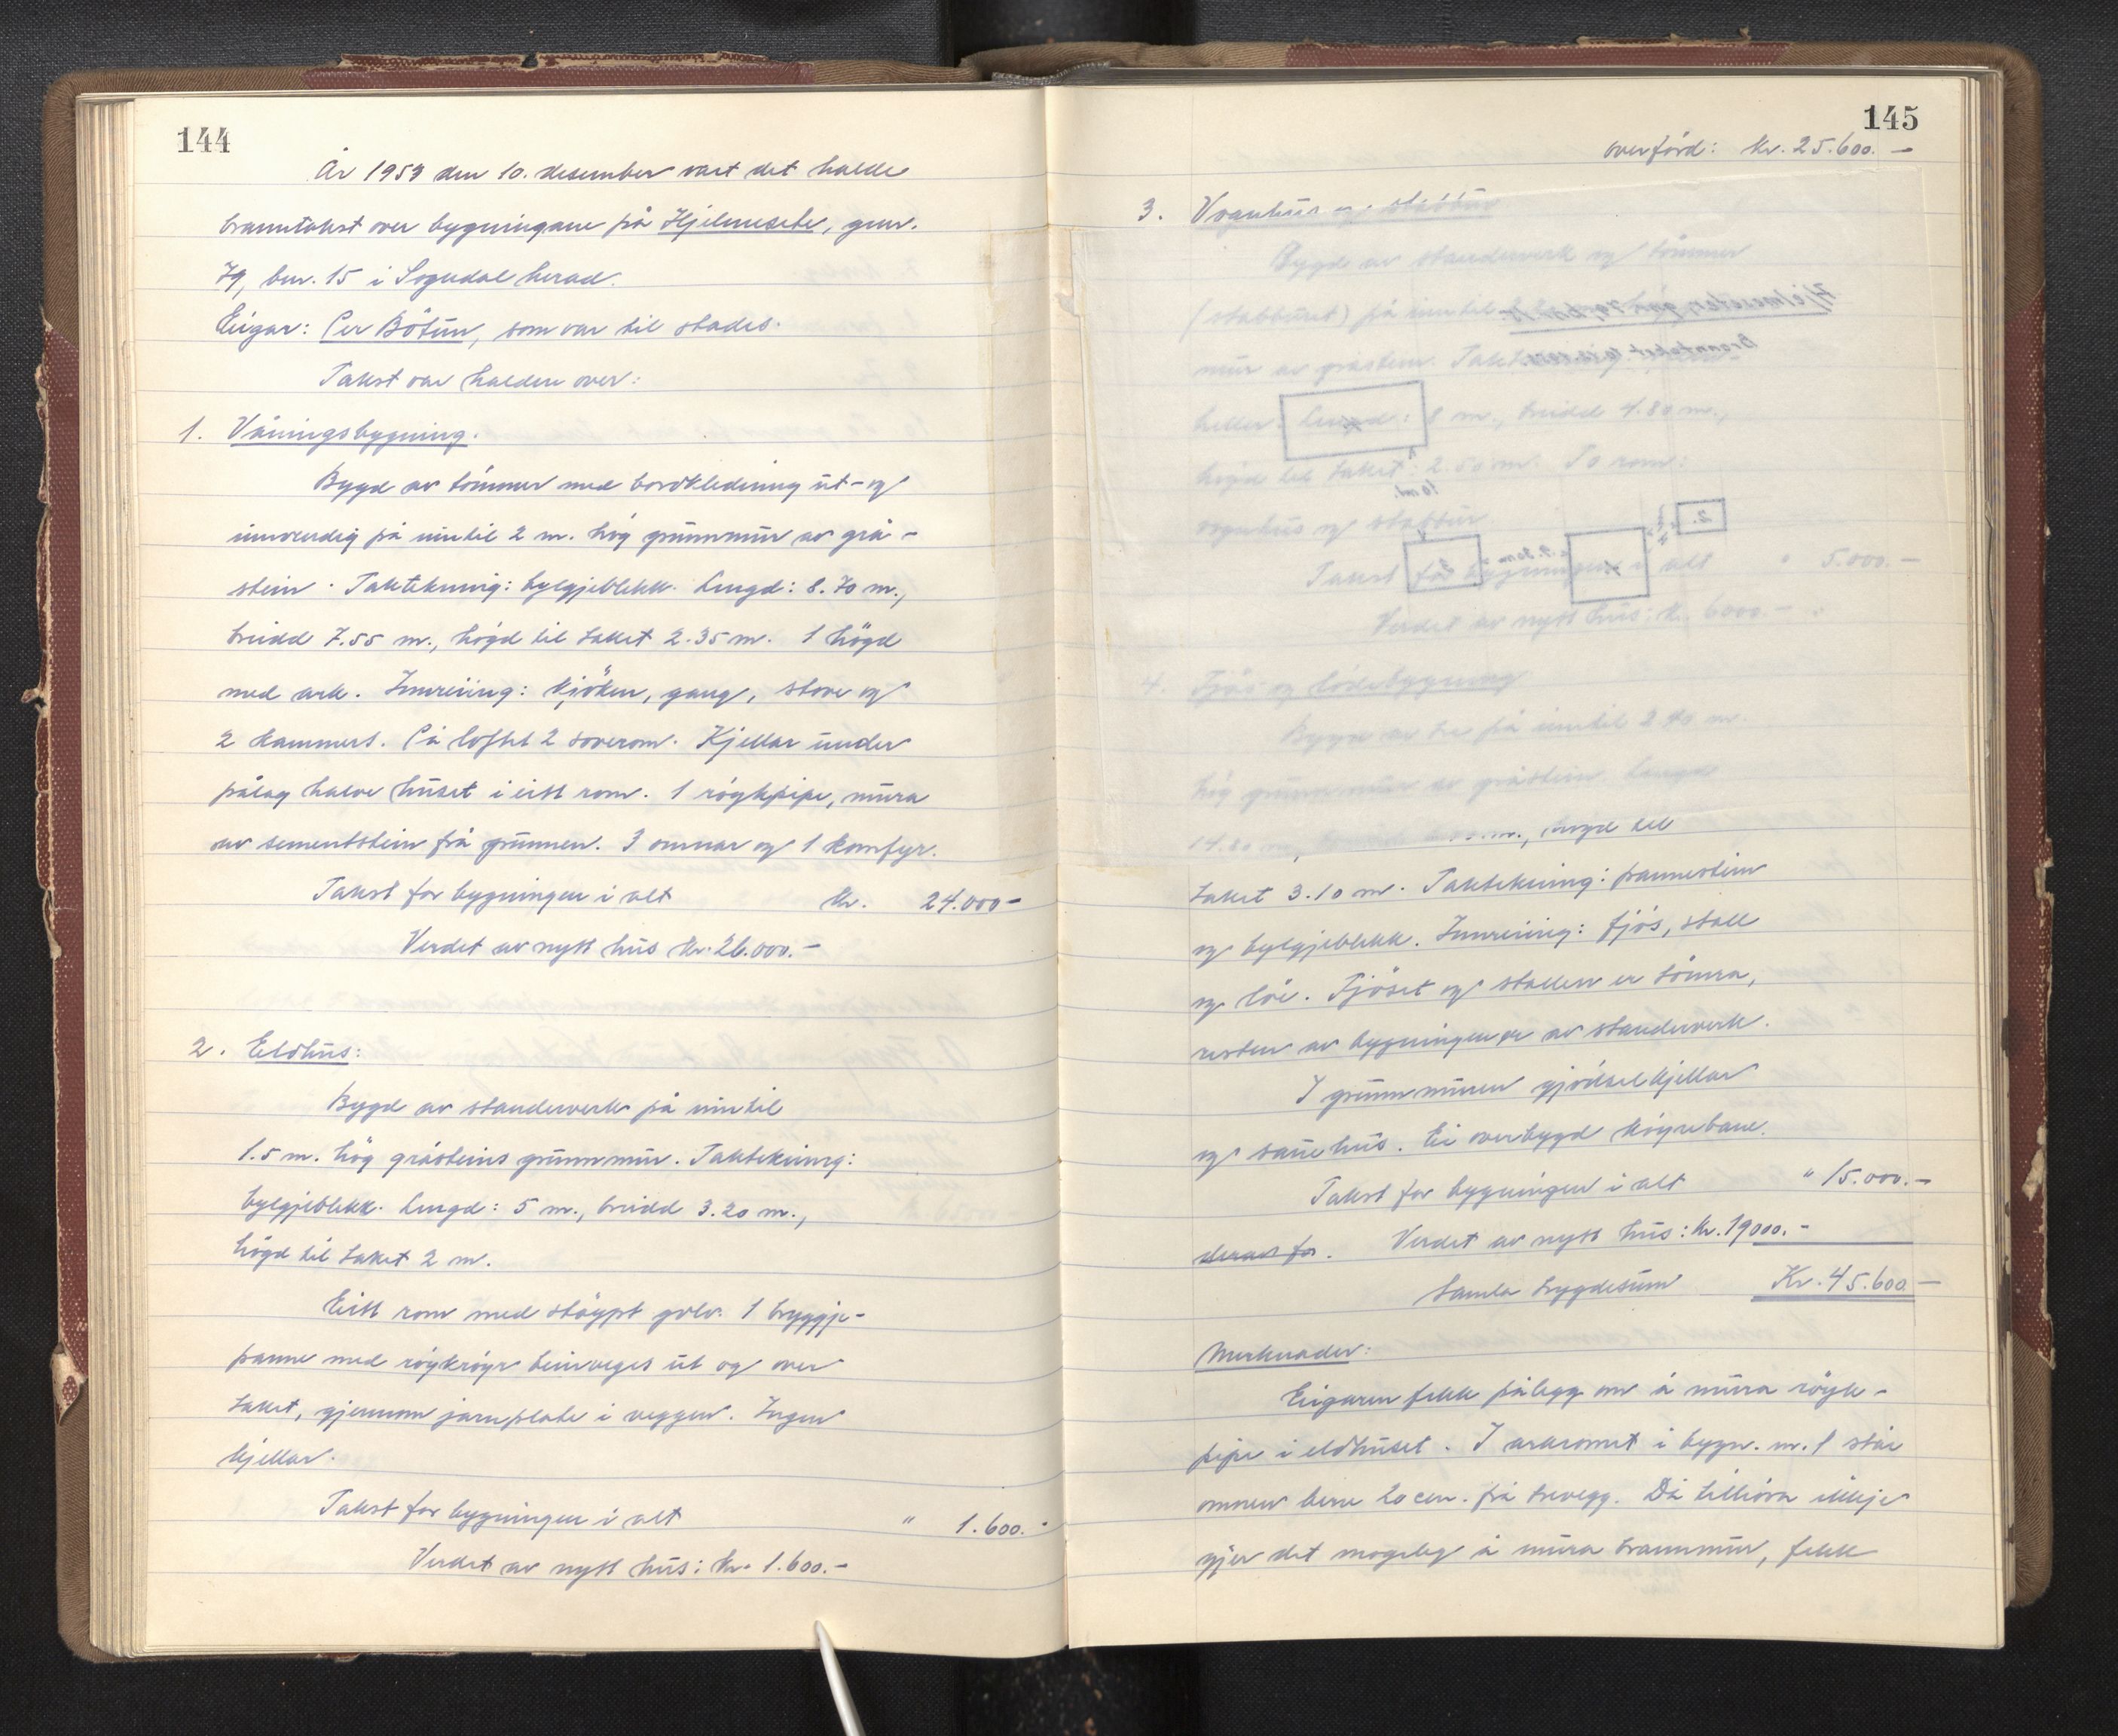 144
År 1953 den 10. desember vart det halde
branntakst over bygningane på Hjelmesete, gnr.
79, bnr. 15 i Sogndal herad.
Eigar: Per Bötun, som var til stades.
Takst var halden over:
1. Våningsbygning.
Bygd av tömmer med bordkledning ut- og
innvendig på inntil 2 m. hög grunnmur av grå-
stein. Taktekning: bylgjeblekk. Lengd: 8.70 m.,
breidd 7.55 m., högd til taket 2.35 m. 1 högd
med ark. Innreiing: kjöken, gang, stove og
2 kammers. På loftet 2 soverom. Kjellar under
pålag halve huset i eitt rom. 1 röykpipe, mura
av sementstein frå grunnen. 3 omnar og 1 komfyr.
Takst for bygningen i alt kr. 24.000-
Verdet av nytt hus kr. 26.000.-
2. Eldhus:
Bygd av standerverk på inntil
1.5 m. hög gråsteins grunnmur. Taktekning:
bylgjeblekk. Lengd: 5 m., breidd 3.20 m.,
högd til taket 2 m.
Eitt rom med stöypt golv. 1 bryggje-
panne med röykröyr beinveges ut og over
taket, gjennom jarnplate i veggen. Ingen
kjellar.
Takst for bygningen i alt " 1.600.-
Verdet av nytt hus: kr. 1.600.-
145
overförd: kr. 25.600.-
3. Vognhus og stabbur
Bygd av standerverk og tömmer
(stabburet) på inntil
mur av gråstein. Takt
heller. Lengd: 8 m., breidd 4.80 m.,
högd til taket: 2.50 m. To rom:
vognhus og stabbur.
Takst for bygningen i alt " 5.000.-
Verdet av nytt hus: kr. 6000.-
4. Fjös og lödebygning
Bygd av tre på inntil 2.40 m.
hög grunnmur av gråstein. Lengd
14.80 m., m., högd til
taket 3.10 m. Taktekning: pannestein
og bylgjeblekk. Innreiing: fjös, stall
og löe. Fjöset og stallen er tömra,
resten av bygningen er av standerverk.
I grunnmuren gjödselkjellar
og sauehus. Ei overbygd köyrebane.
Takst for bygningen i alt " 15.000.-
Verdet av nytt hus: kr. 19000.-
Samla trygdesum Kr. 45.600-
Merknader:
Eigaren fekk pålegg om å mura röyk-
pipe i eldhuset. I arkromet i bygn. nr. 1 står
omnen berre 20 cm. frå trevegg. Då tilhöva ikkje
gjer det mogeleg å mura brannmur, fekk